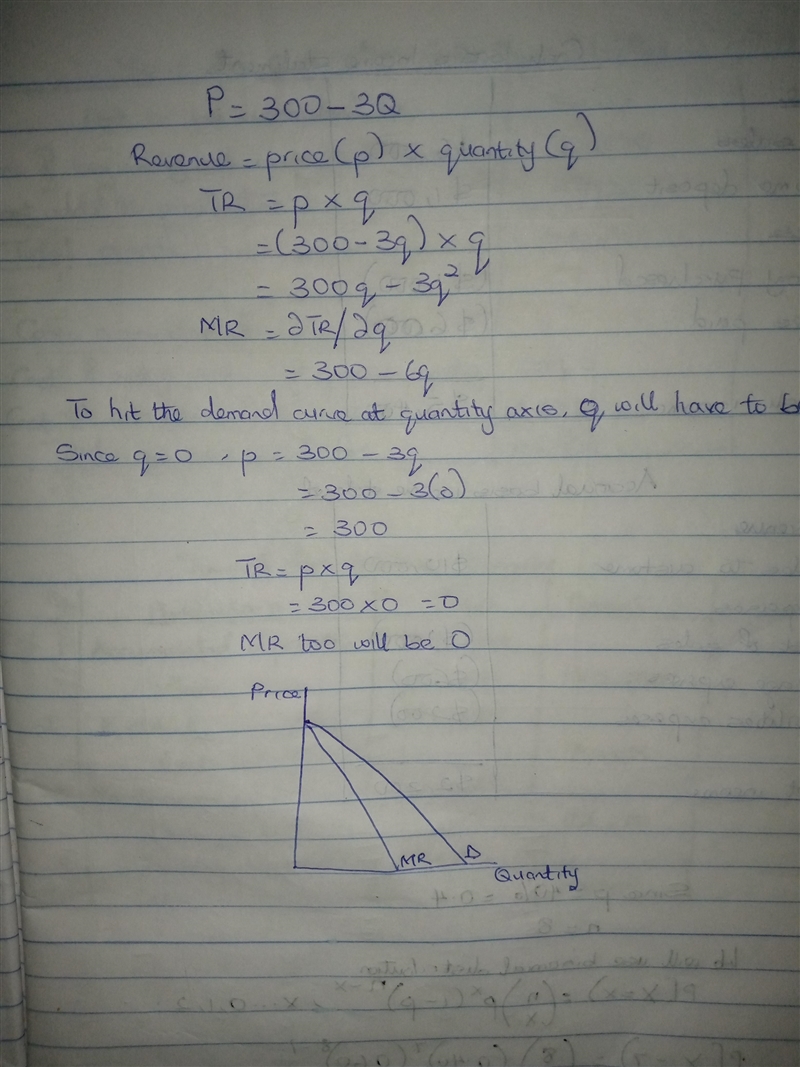 P = 300 - 3Q
Revenue = price(p) x quantity(q)
TR = p x q
=(300 - 3q) x q
= 300q - 3q²
MR = ∂TR/∂q
= 300 - 6q
To hit the demand curve at quantity axis, q will have to
Since q=0, p = 300 - 3q
= 300 - 3(0)
= 300
TR = p x q
= 300 x 0 = 0
MR too will be 0
Price
MR D
Quantity